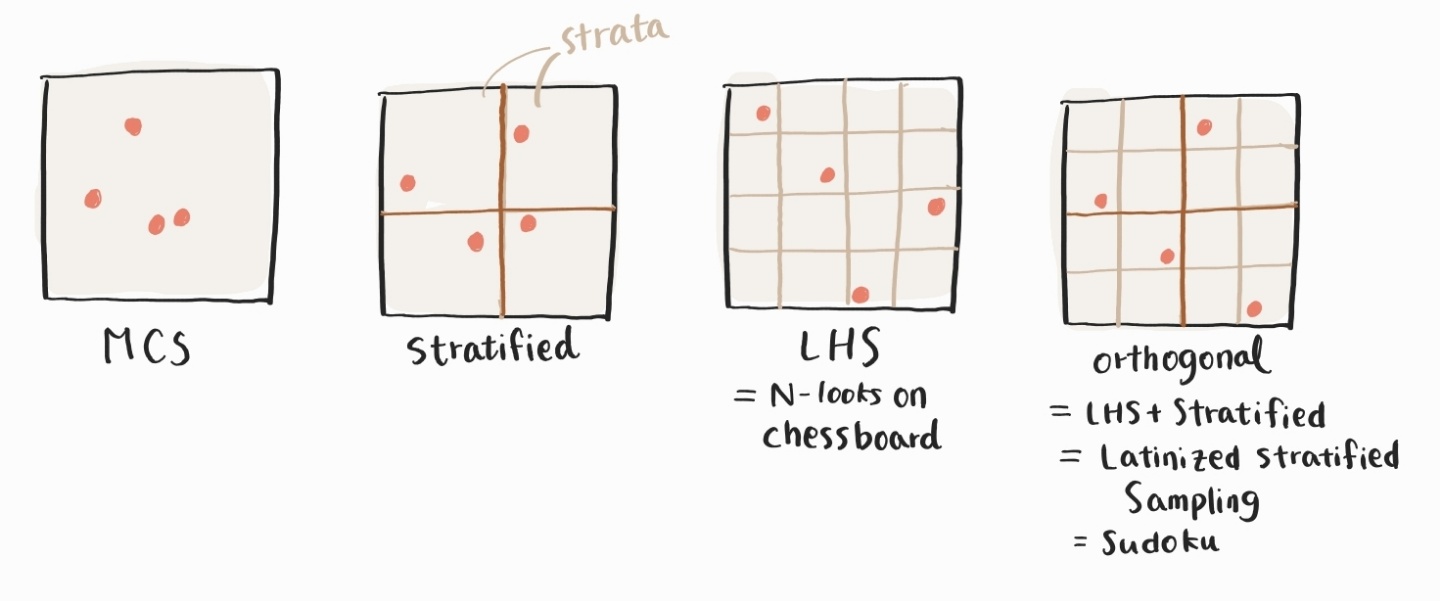 strata
MCS
stratified
LHS
= N-looks on
chessboard
orthogonal
= LHS + Stratified
= Latinized stratified
Sampling
= Sudoku